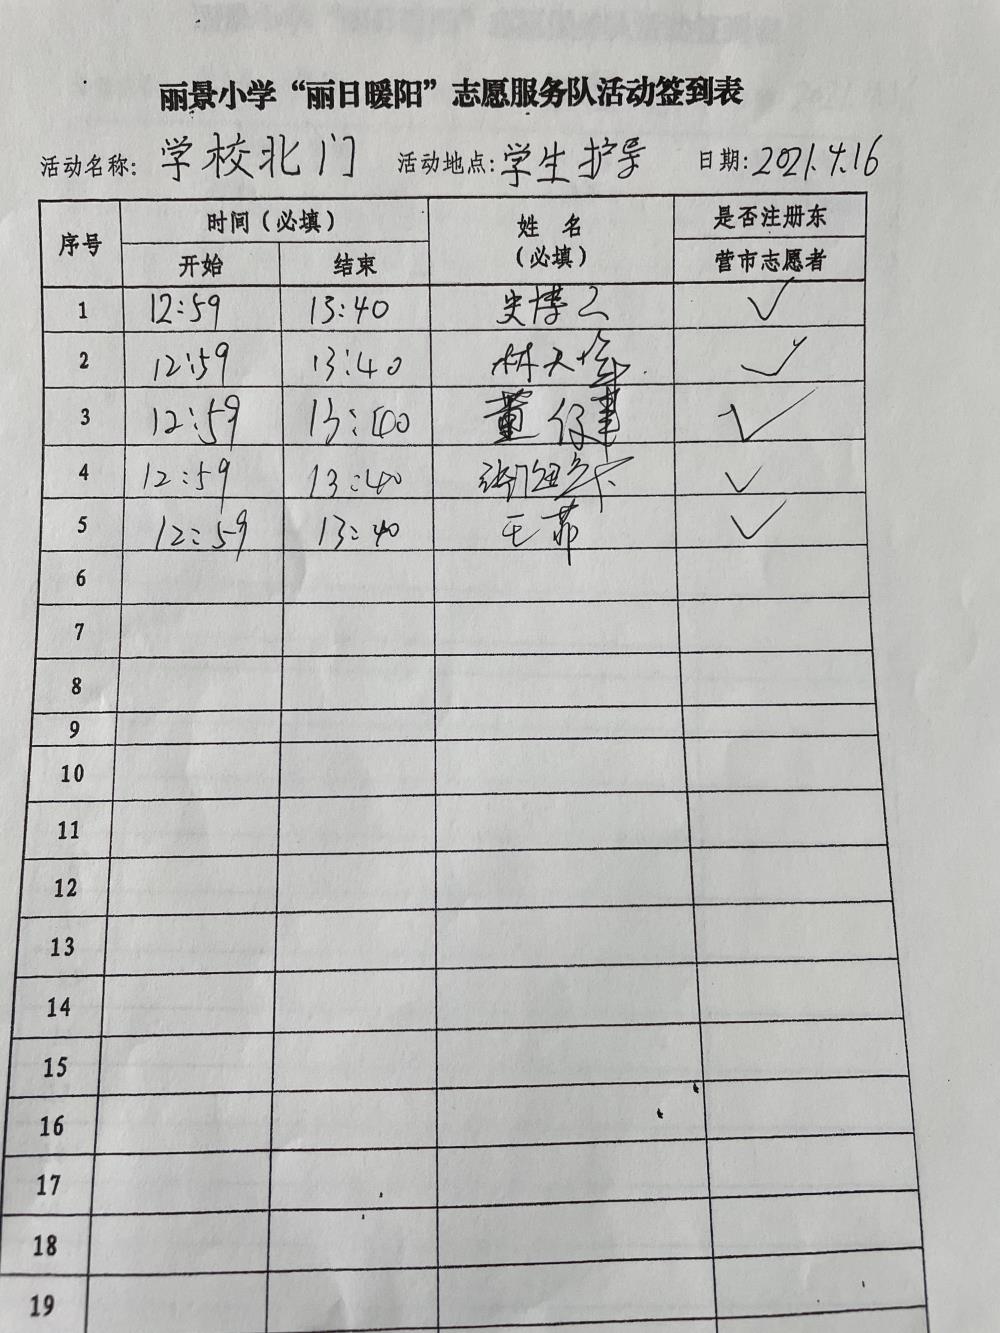 丽景小学“丽日暖阳”志愿服务队活动签到表
活动名称: 学校北门 活动地点: 学生护导 日期: 2021.4.16
序号 时间(必填) 姓 名 (必填) 是否注册东
开始 结束 营市志愿者
1 12:59 13:40 史博 ✓
2 12:59 13:40 林 ✓
3 12:59 13: 董 ✓
4 12:59 13:40 ✓
5 12:59 13:40 王菲 ✓
6
7
8
9
10
11
12
13
14
15
16
17
18
19